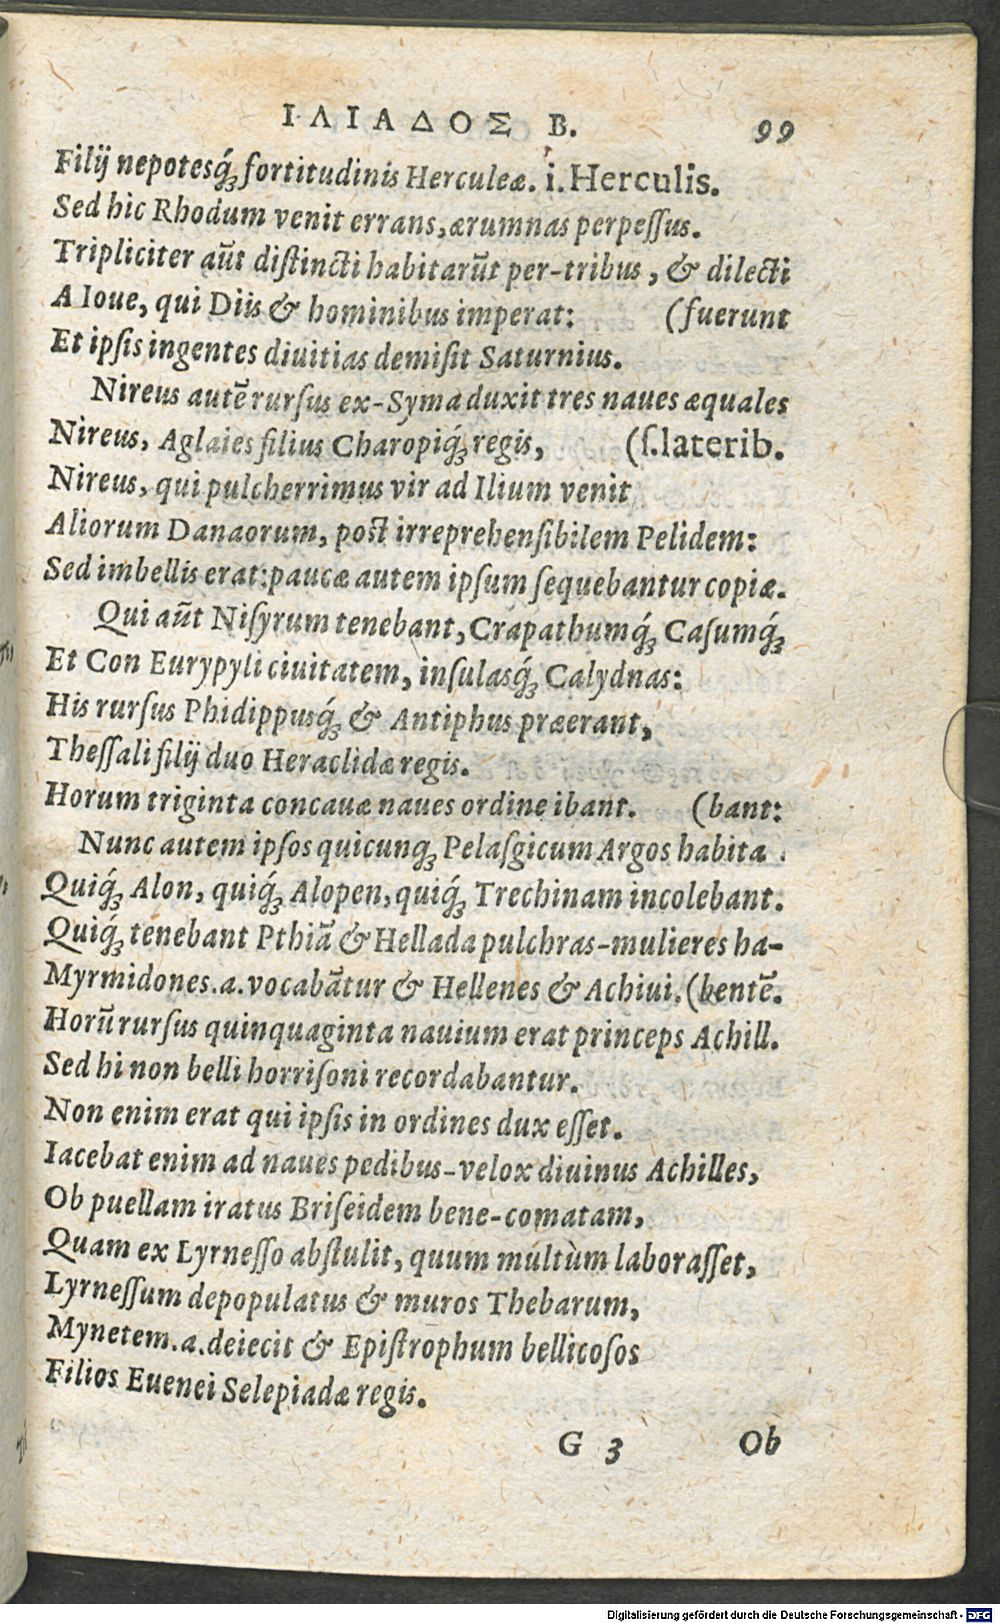 ΙΛΙΑΔΟΣ Β. 99
Filij nepotesq́ꝫ fortitudinis Herculeæ. i. Herculis.
Sed hic Rhodum venit errans, ærumnas perpeſſus.
Tripliciter aũt diſtincti habitarũt per-tribus, & dilecti
A Ioue, qui Diis & hominibus imperat: (fuerunt
Et ipſis ingentes diuitias demiſit Saturnius.
Nireus autẽ rurſus ex-Syma duxit tres naues æquales
Nireus, Aglaies filius Charopiq́ꝫ regis, (ſ.laterib.
Nireus, qui pulcherrimus vir ad Ilium venit
Aliorum Danaorum, poſt irreprehenſibilem Pelidem:
Sed imbellis erat: paucæ autem ipſum ſequebantur copiæ.
Qui aũt Niſyrum tenebant, Crapathumq́ꝫ Caſumq́ꝫ
Et Con Eurypyli ciuitatem, inſulasq́ꝫ Calydnas:
His rurſus Phidippusq́ꝫ & Antiphus præerant,
Theſſali filij duo Heraclidæ regis.
Horum triginta concauæ naues ordine ibant. (bant:
Nunc autem ipſos quicunqꝫ Pelaſgicum Argos habita
Quiq́ꝫ Alon, quiq́ꝫ Alopen, quiq́ꝫ Trechinam incolebant.
Quiq́ꝫ tenebant Pthiã & Hellada pulchras-mulieres ha-
Myrmidones.a. vocabãtur & Hellenes & Achiui. (bentẽ.
Horũ rurſus quinquaginta nauium erat princeps Achill.
Sed hi non belli horriſoni recordabantur.
Non enim erat qui ipſis in ordines dux eſſet.
Iacebat enim ad naues pedibus-velox diuinus Achilles,
Ob puellam iratus Briſeidem bene-comatam,
Quam ex Lyrneſſo abſtulit, quum multùm laboraſſet,
Lyrneſſum depopulatus & muros Thebarum,
Mynetem.a.deiecit & Epiſtrophum bellicoſos
Filios Euenei Selepiadæ regis.
G 3 Ob
Digitalisierung gefördert durch die Deutsche Forschungsgemeinschaft - DFG